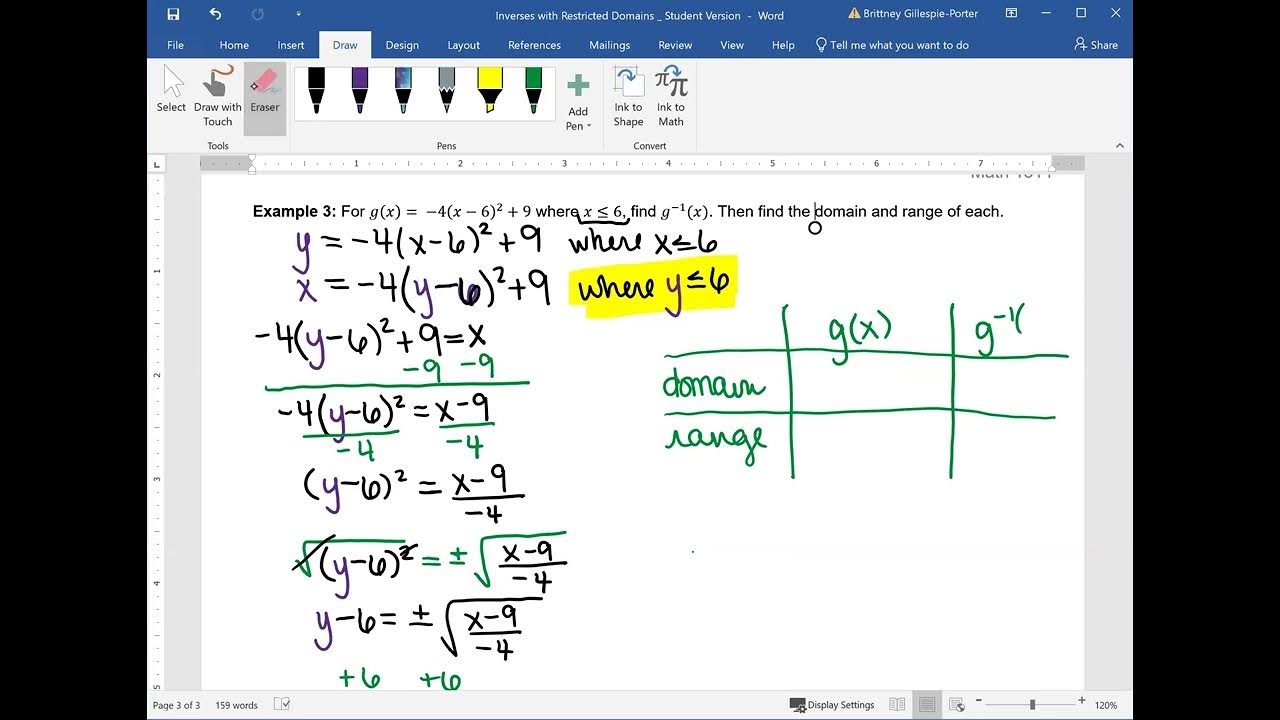 Inverses with Restricted Domains _ Student Version - Word
Brittney Gillespie-Porter
File Home Insert Draw Design Layout References Mailings Review View Help Tell me what you want to do Share
Select
Draw with Touch
Eraser
Add Pen
Ink to Shape
Ink to Math
Tools
Pens
Convert
L 1 2 3 4 5 6 7
Example 3: For g(x) = −4(x − 6)² + 9 where x ≤ 6, find g⁻¹(x). Then find the domain and range of each.
y = -4(x-6)² + 9 where x ≤ 6
x = -4(y-6)² + 9 where y ≤ 6
-4(y-6)² + 9 = x
-9 -9
-4(y-6)² = x-9
-4 -4
(y-6)² = x-9
-4
√(y-6)² = ± √x-9
-4
y-6 = ± √x-9
-4
+6 +6
g(x) g⁻¹(
domain
range
1
2
3
4
5
Page 3 of 3 159 words Display Settings - + 120%